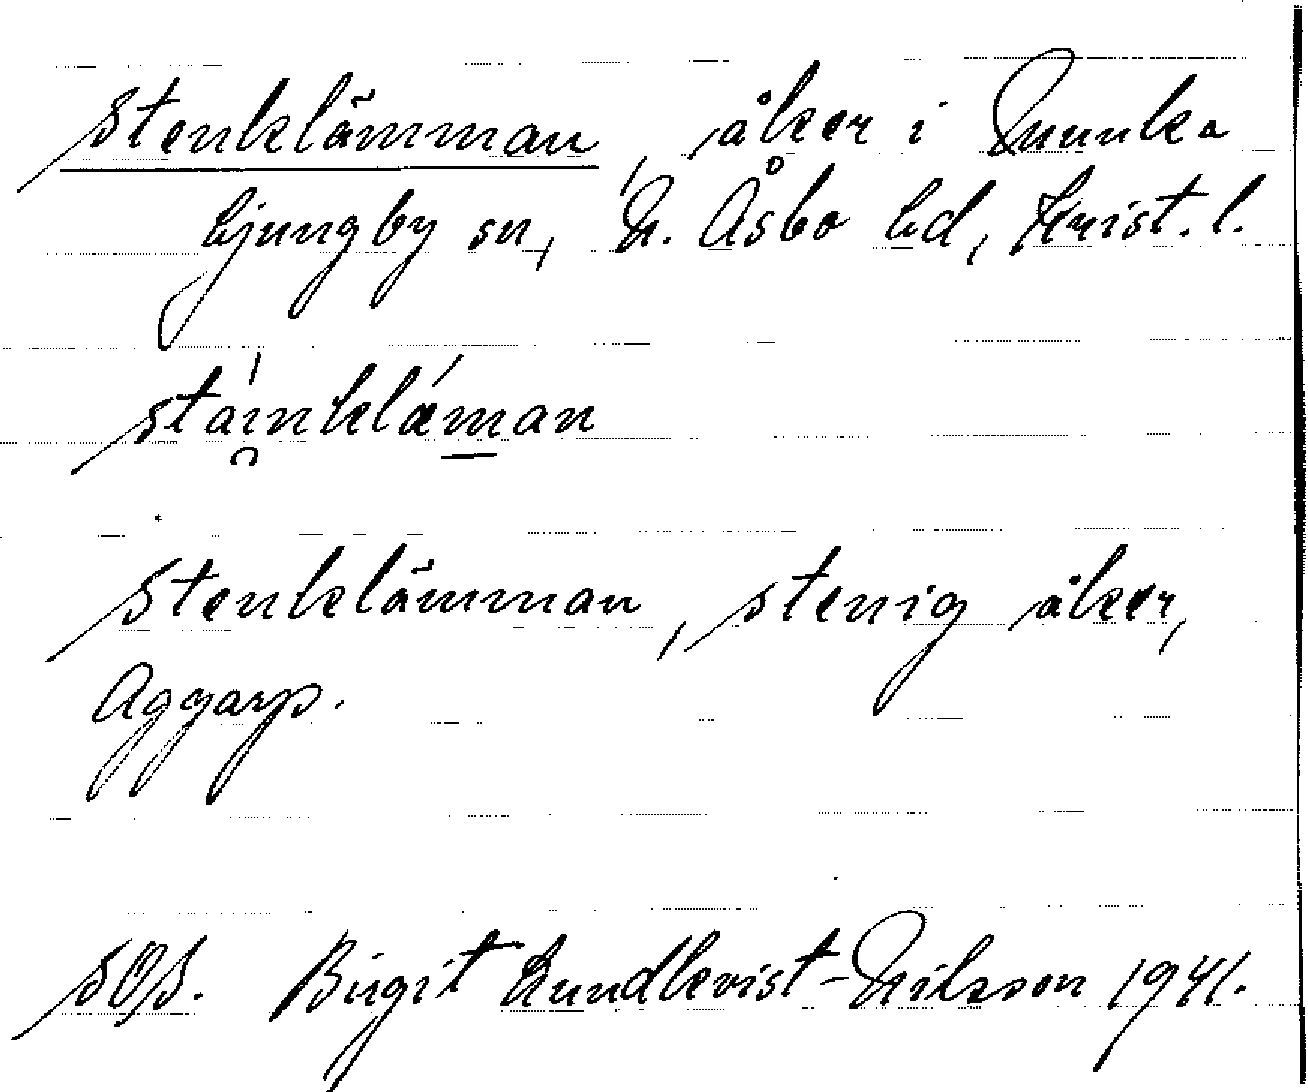 Stenklämman, åker i Munka
Ljungby sn, N. Åsbo hd, Krist. l.
stai̯nklæman
Stenklämman, stenig åker,
Aggarp.
SOS. Birgit Lundkvist-Nilsson 1941.